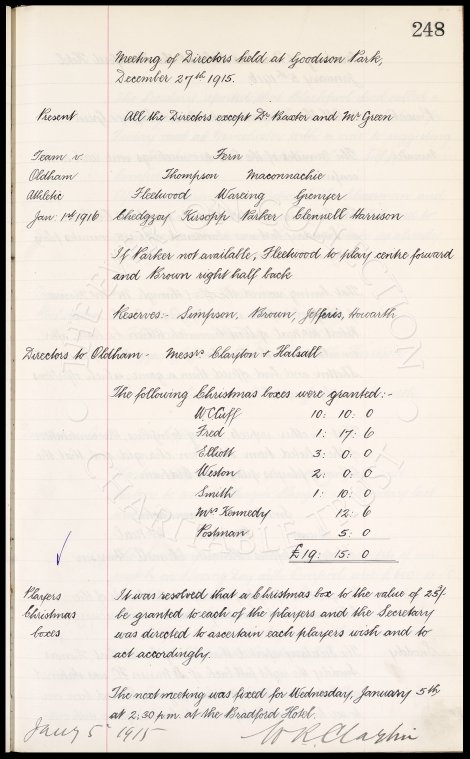 248
Meeting of Directors held at Goodison Park,
December 27th 1915.
Present All the Directors except Dr Baxter and Mr Green
Team v. Fern
Oldham Thompson Maconnachie
Athletic Fleetwood Wareing Grenyer
Jan: 1st 1916 Chedgzoy Kirsopp Parker Clennell Harrison
If Parker not available, Fleetwood to play centre forward
and Brown right half back
Reserves:- Simpson, Brown, Jefferis, Howarth
Directors to Oldham - Messrs Clayton & Halsall
The following Christmas boxes were granted:-
W Cuff 10: 10: 0
Fred 1: 17: 6
Elliott 3: 0: 0
Weston 2: 0: 0
Smith 1: 10: 0
Mrs Kennedy 12: 6
Postman 5: 0
£19: 15: 0
Players It was resolved that a Christmas box to the value of 25/-
Christmas be granted to each of the players and the Secretary
boxes was directed to ascertain each players wish and to
act accordingly.
The next meeting was fixed for Wednesday, January 5th
at 2:30 p.m. at the Bradford Hotel.
Jany 5 1915 W. R. Clayton